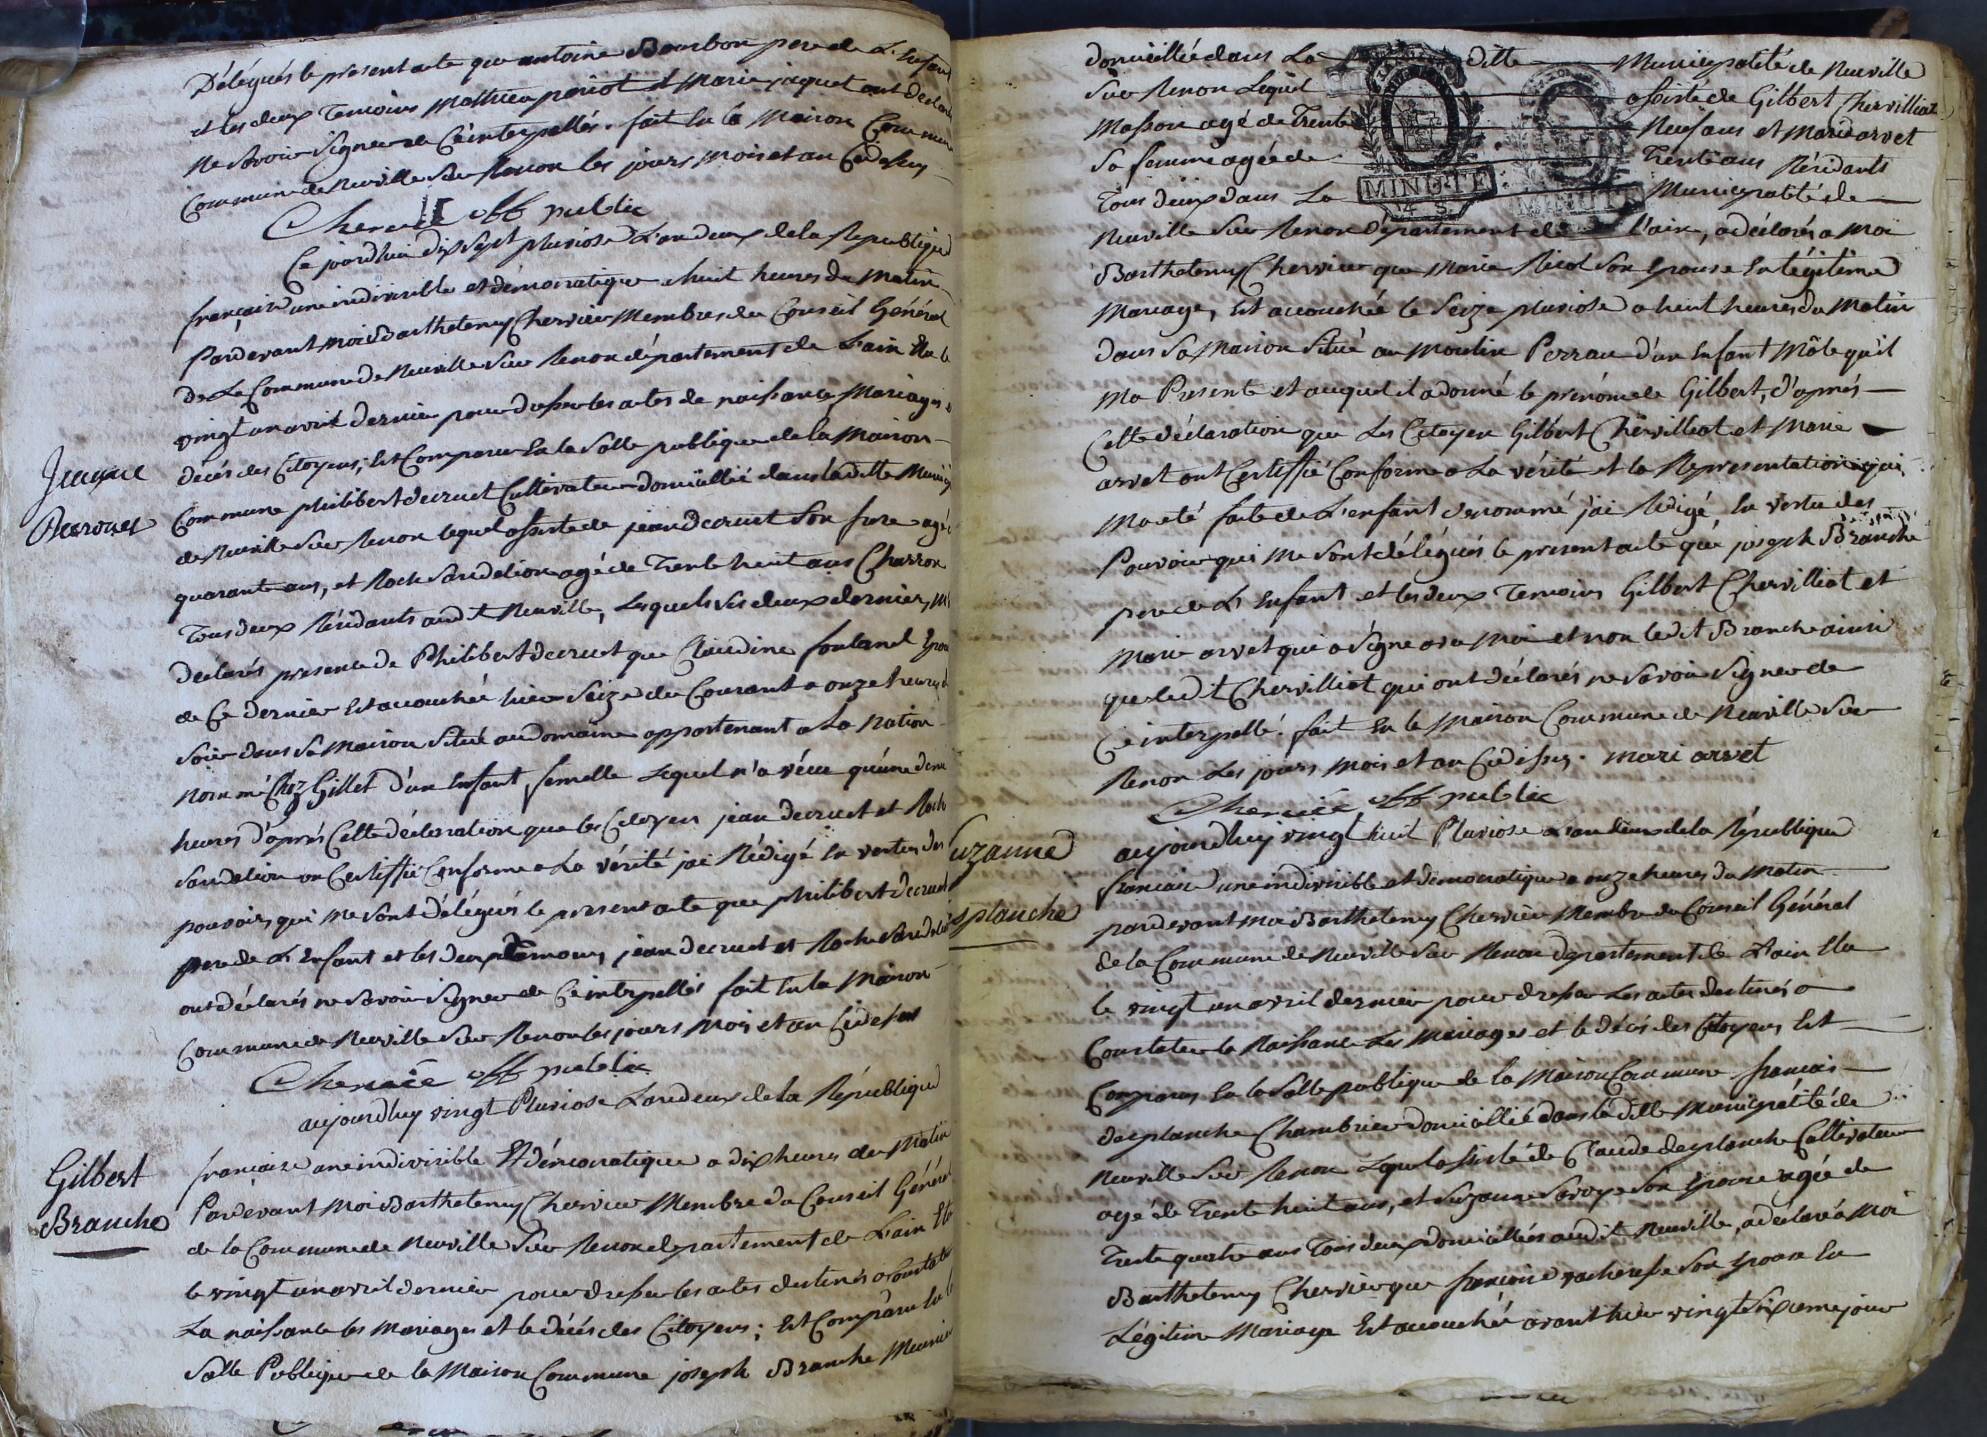 Délégués le present acte que antoine Bourbon pere de L'enfant
et les deux Temoins Mathieu et Marie jaquet ont declaré
Ne Savoir Signer de Ce interpellés. fait En la Maison Commune
Commune de Neuville Sur Renon les jours Mois et an Cidessus
Chervié off public
Ce jourdhui dix Sept pluviose L'an deux de la Republique
française une indivisible et démocratique a huit heures du Matin
Pardevant Moi Barthelemy Chervier Membre du Conseil Général
De La Commune de Neuville Sur Renon département de L'ain Elu le
vingt un avril dernier pour dresser les actes de naissance Mariages et
décès des Citoyens, Est Comparu En la Salle publique de la Maison
Commune philibert decruet Cultivateur domicillié dans la ditte
de Neuville Sur Renon lequel assisté de jean decruet Son frere agé
quarante ans, et Roch Sandelion agé de Trente huit ans Charron
Tous deux Résidants audit Neuville, Lesquels des deux derniers
declarés presence de Philibert decruet que Claudine fontanel
de Ce dernier Est acouchée hier Seize du Courant a onze heures
Soir dans Sa Maison Situé au domaine appartenant a La Nation
Nommé Chez Gillet d'un Enfant femelle Lequel n'a vécu qu'une demi
heures d'après Cette déclaration que les Citoyens jean decruet et Roch
Sandelion on Certiffié Conforme a La vérité jai Rédigé En vertu des
pouvoirs qui Me Sont Délégués le present acte que philibert decruet
pere de L'Enfant et les deux Temoins jean decruet et Roch
ont déclarés ne Savoir Signer de Ce interpellés fait En la Maison
Commune de Neuville Sur Renon les jours Mois et an Cidessus
Chervié off public
Gilbert
Branche
aujourdhuy vingt Pluviose L'an deux de la République
française une indivisible Et démocratique a dix heures du Matin
Pardevant Moi Barthelemy Chervier Membre du Conseil Général
de la Commune de Neuville Sur Renon departement de L'ain Elu
le vingt un avril dernier pour dresser les actes destinés a Constater
La naissance les Mariages et le décès des Citoyens; Est Comparu En la
Salle Publique de la Maison Commune joseph Branche Meunier
domicillié dans La ditte Municipalité de Neuville
Sur Renon Lequel assisté de Gilbert Chervilliat
Masson agé de Trente Neuf ans et Marie arvet
Sa femme agée de Trente ans Résidants
Tous deux dans La Municipalité de
MINUTE
4 S.
Neuville Sur Renon Département de L'ain, a déclarés a Moi
Barthelemy Chervier que Marie Son Epouse En Légitime
Mariage, Est acouchée le Seize pluviose a huit heures du Matin
dans Sa Maison Situé au Moulin Perrau d'un Enfant Mâle qu'il
Ma Presenté et auquel il a donné le prénom de Gilbert, d'après
Cette déclaration que Les Citoyens Gilbert Chervilliat et Marie
arvet ont Certiffié Conforme a La vérité et la Representation qui
Ma eté faite de L'enfant denommé j'ai Rédigé En vertu des
Pouvoirs qui Me Sont délégués le present acte que joseph Branche
pere de L'Enfant et les deux Temoins Gilbert Chervilliat et
Marie arvet qui a Signé avec Moi et non ledit Branche ainsi
que ledit Chervilliat qui ont déclarés ne Savoir Signer de
Ce interpellé. fait En la Maison Commune de Neuville Sur
Renon Les jours Mois et an Cidessus. mari arvet
Chervié off public
Suzanne
Desplanche
aujourdhuy vingt huit Pluviose L'an deux de la République
francaise une indivisible et démocratique a onze heures du Matin
pardevant Moi Barthelemy Chervier Membre du Conseil Général
de la Commune de Neuville Sur Renon departement de L'ain Elu
le vingt un avril dernier pour dresser Les actes destinés a
Constater la Naissance Les Mariages et le décès des Citoyens Est
Comparus En la Salle publique de la Maison Commune francois
desplanche domicillié dans la ditte Municipalité de
Neuville Sur Renon Lequel assisté de Claude desplanche Cultivateur
agé de Trente huit ans, et Suzanne Savoye Son Epouse agée de
Trente quatre ans Tous deux domicilliés audit Neuville, a déclaré a Moi
Barthelemy Chervier que françoise Son Epouse En
Légitime Mariage Est acouchée avant hier vingt Sixieme jour